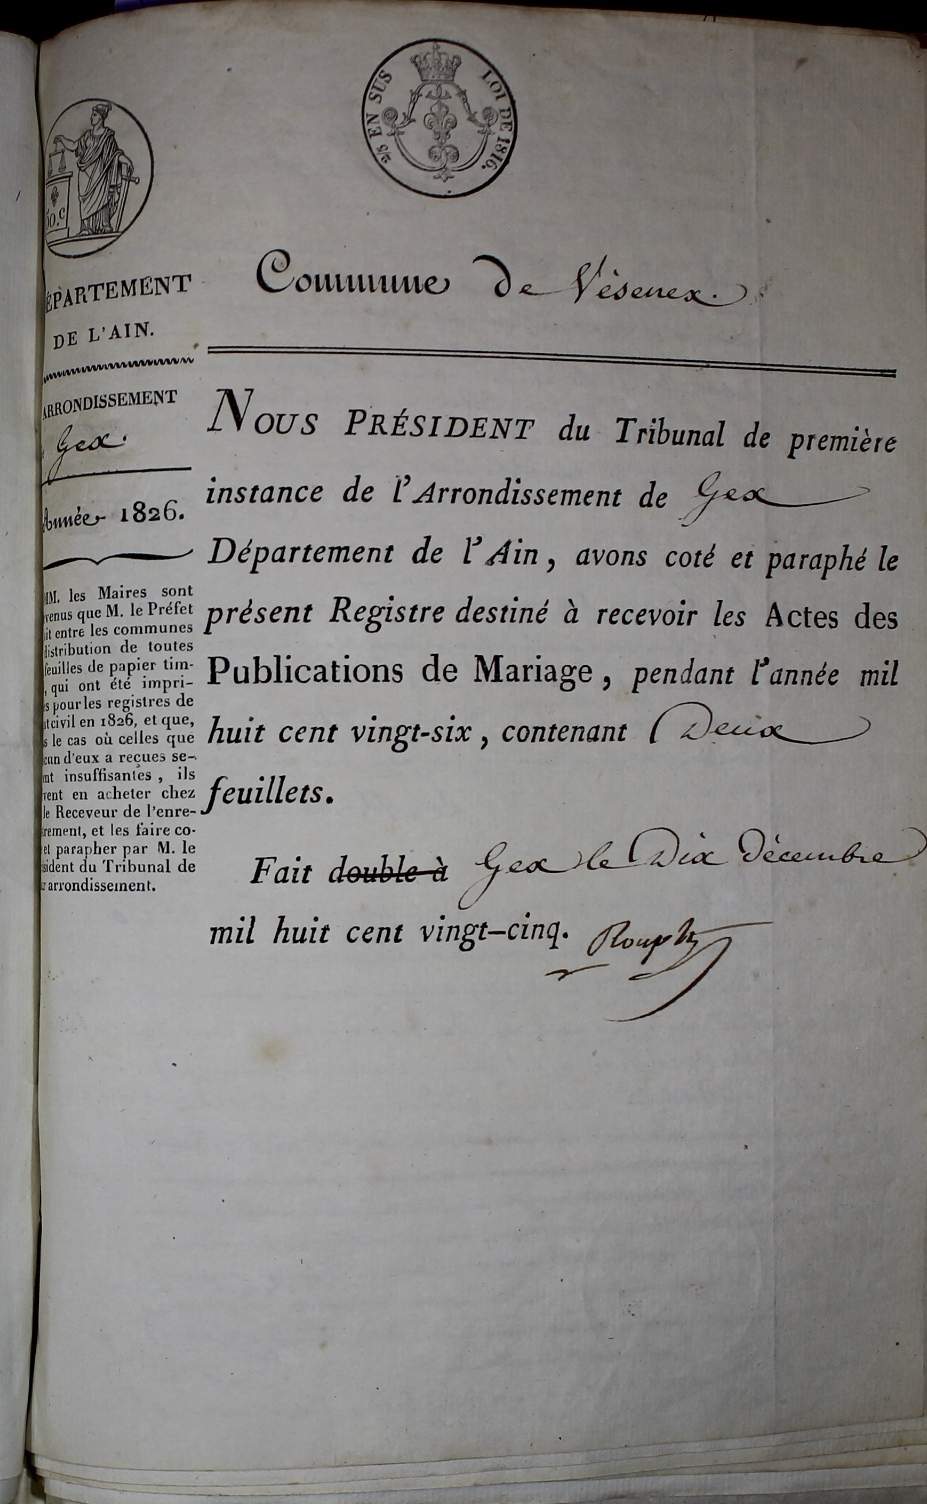 2/5 EN SUS
LOI DE 1816.
50.c
Commune de Vésenex.
ÉPARTEMENT
DE L'AIN.
ARRONDISSEMENT
Gex.
Année 1826.
MM. les Maires sont
venus que M. le Préfet
it entre les communes
distribution de toutes
feuilles de papier tim-
, qui ont été impri-
s pour les registres de
t civil en 1826, et que,
s le cas où celles que
cun d'eux a reçues se-
nt insuffisantes, ils
vent en acheter chez
le Receveur de l'enre-
rement, et les faire co-
et parapher par M. le
sident du Tribunal de
r arrondissement.
NOUS PRÉSIDENT du Tribunal de première
instance de l'Arrondissement de Gex
Département de l'Ain, avons coté et paraphé le
présent Registre destiné à recevoir les Actes des
Publications de Mariage, pendant l'année mil
huit cent vingt-six, contenant Deux
feuillets.
Fait double à Gex le Dix Décembre
mil huit cent vingt-cinq.